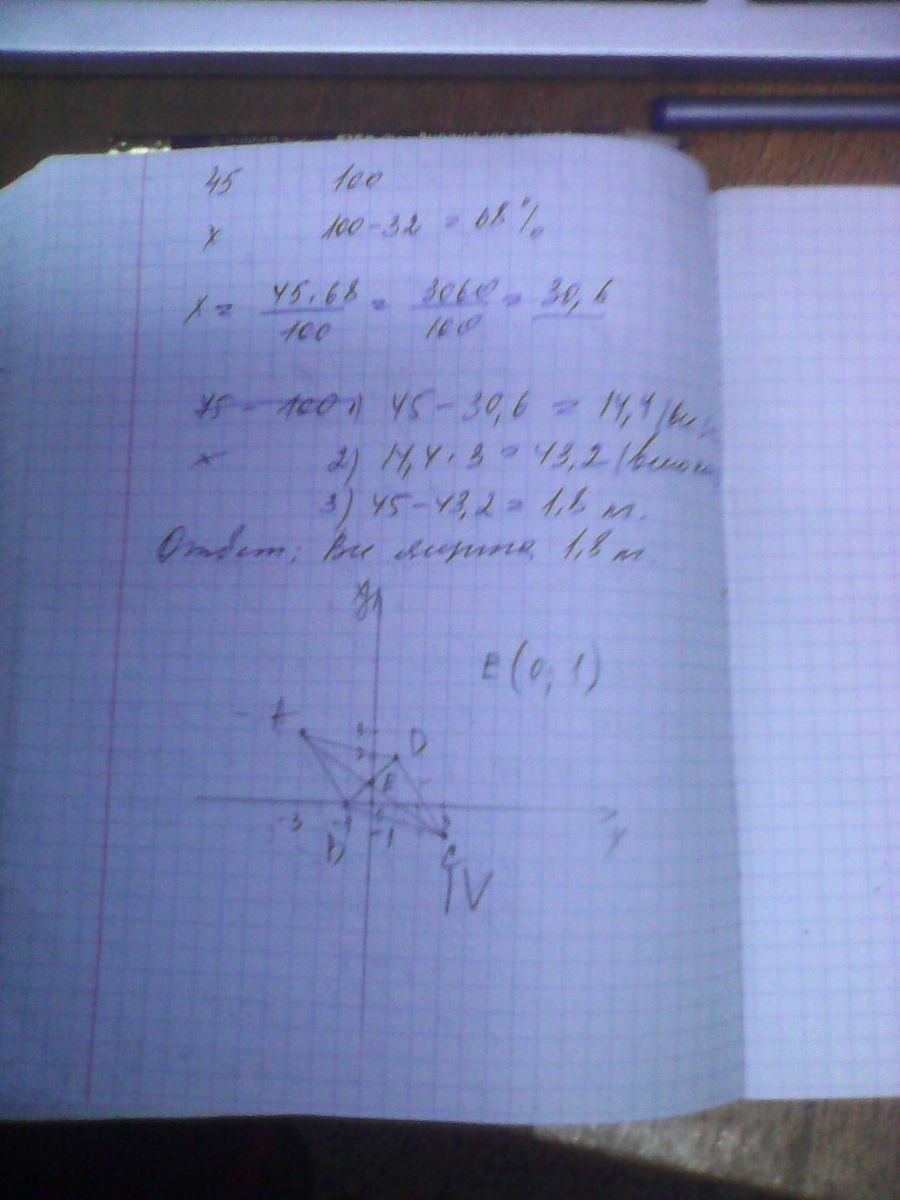 45 100
x 100-32 = 68%
x = 45·68/100 = 3060/100 = 30,6
75 - 100 1) 45-30,6 = 14,4
x 2) 14,4·3 = 43,2
3) 45-43,2 = 1,8 м.
Ответ: 1,8 м
y
E (0; 1)
A
3
2 D
E
-3 -1
-1 x
B C
IV